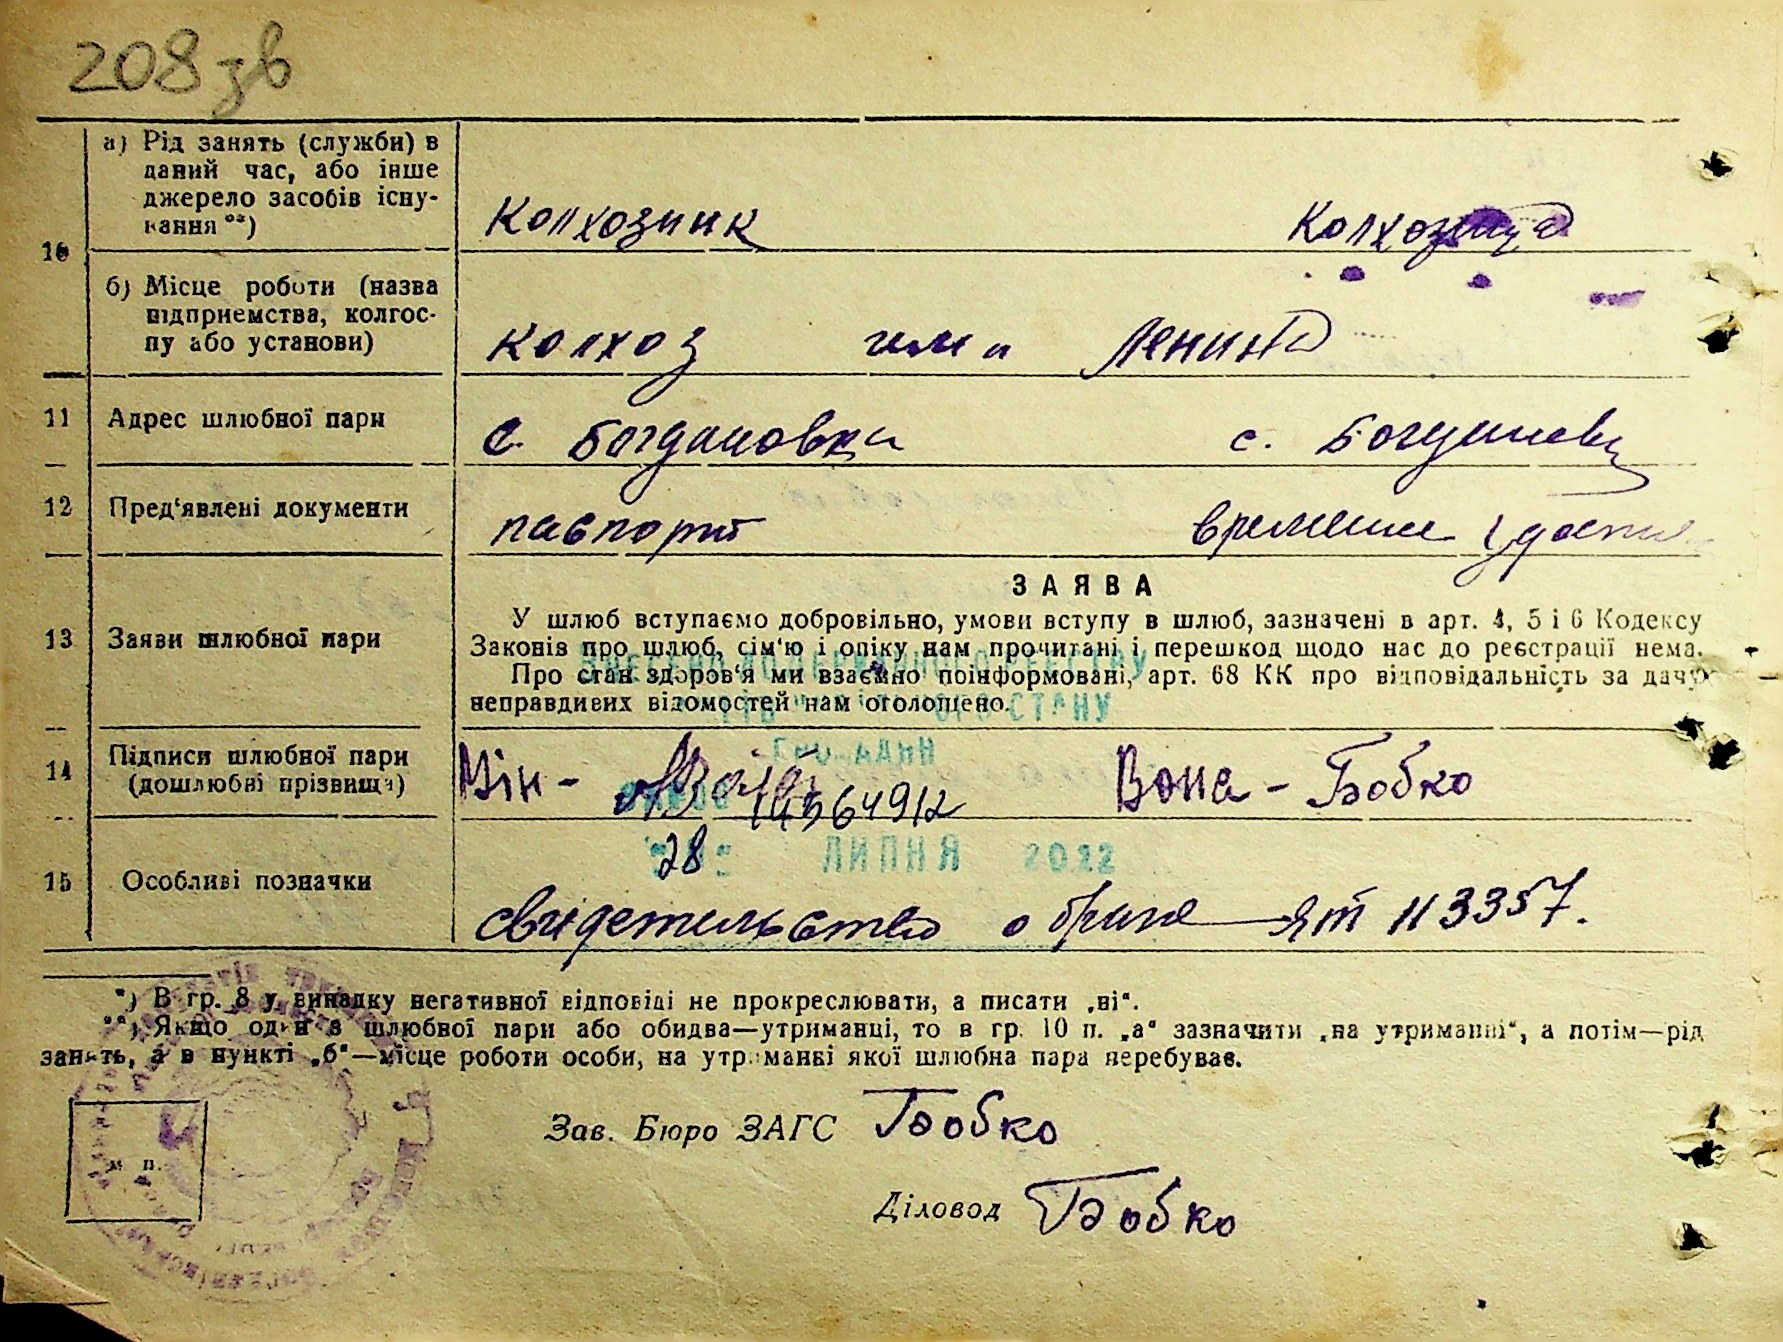 208 зв
10
а) Рід занять (служби) в
даний час, або інше
джерело засобів існу-
вання **)
Колхозник Колхозница
б) Місце роботи (назва
підприємства, колгос-
пу або установи)
колхоз им Ленина
11 Адрес шлюбної пари
с. Богдановка с. Богдановка
12 Пред'явлені документи
паспорт времени удост
13 Заяви шлюбної пари
ЗАЯВА
У шлюб вступаємо добровільно, умови вступу в шлюб, зазначені в арт. 4, 5 і 6 Кодексу
Законів про шлюб, сім'ю і опіку нам прочитані і перешкод щодо нас до реєстрації нема.
Про стан здоров'я ми взаємно поінформовані, арт. 68 КК про відповідальність за дачу
неправдивих відомостей нам оголошено.
ВНЕСЕНО ДО ДЕРЖАВНОГО РЕЄСТРУ
СТАНУ
14 Підписи шлюбної пари
(дошлюбні прізвища)
Він - Вона - Бобко
14564912
28 ЛИПНЯ 2022
15 Особливі позначки
свидетельство о браке ЯТ №3357.
*) В гр. 8 у випадку негативної відповіді не прокреслювати, а писати „ні“.
**) Якщо один з шлюбної пари або обидва—утриманці, то в гр. 10 п. „а“ зазначити „на утриманні“, а потім—рід
занять, а в пункті „б“—місце роботи особи, на утриманні якої шлюбна пара перебуває.
Зав. Бюро ЗАГС Бобко
м п.
Діловод Бобко